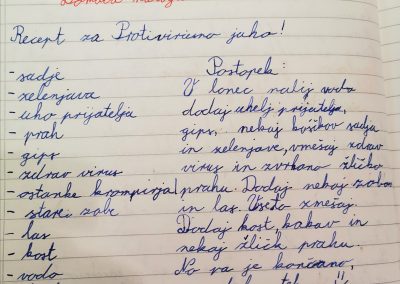 Recept za Protivirusno juho!
- sadje
- zelenjava
- uho prijatelja
- prah
- gips
- zdrav virus
- ostanke krompirja
- stare zobe
- las
- kost
- vodo
Postopek:
V lonec nalij vodo
dodaj uhelj prijatelja,
gips, nekaj koškov sadja
in zelenjave, vmešaj zdrav
virus in zvrhano žličko
prahu. Dodaj nekaj zobov
in las. Vse to zmešaj.
Dodaj kost, kakav in
nekaj žličk prahu.
No pa je končano,